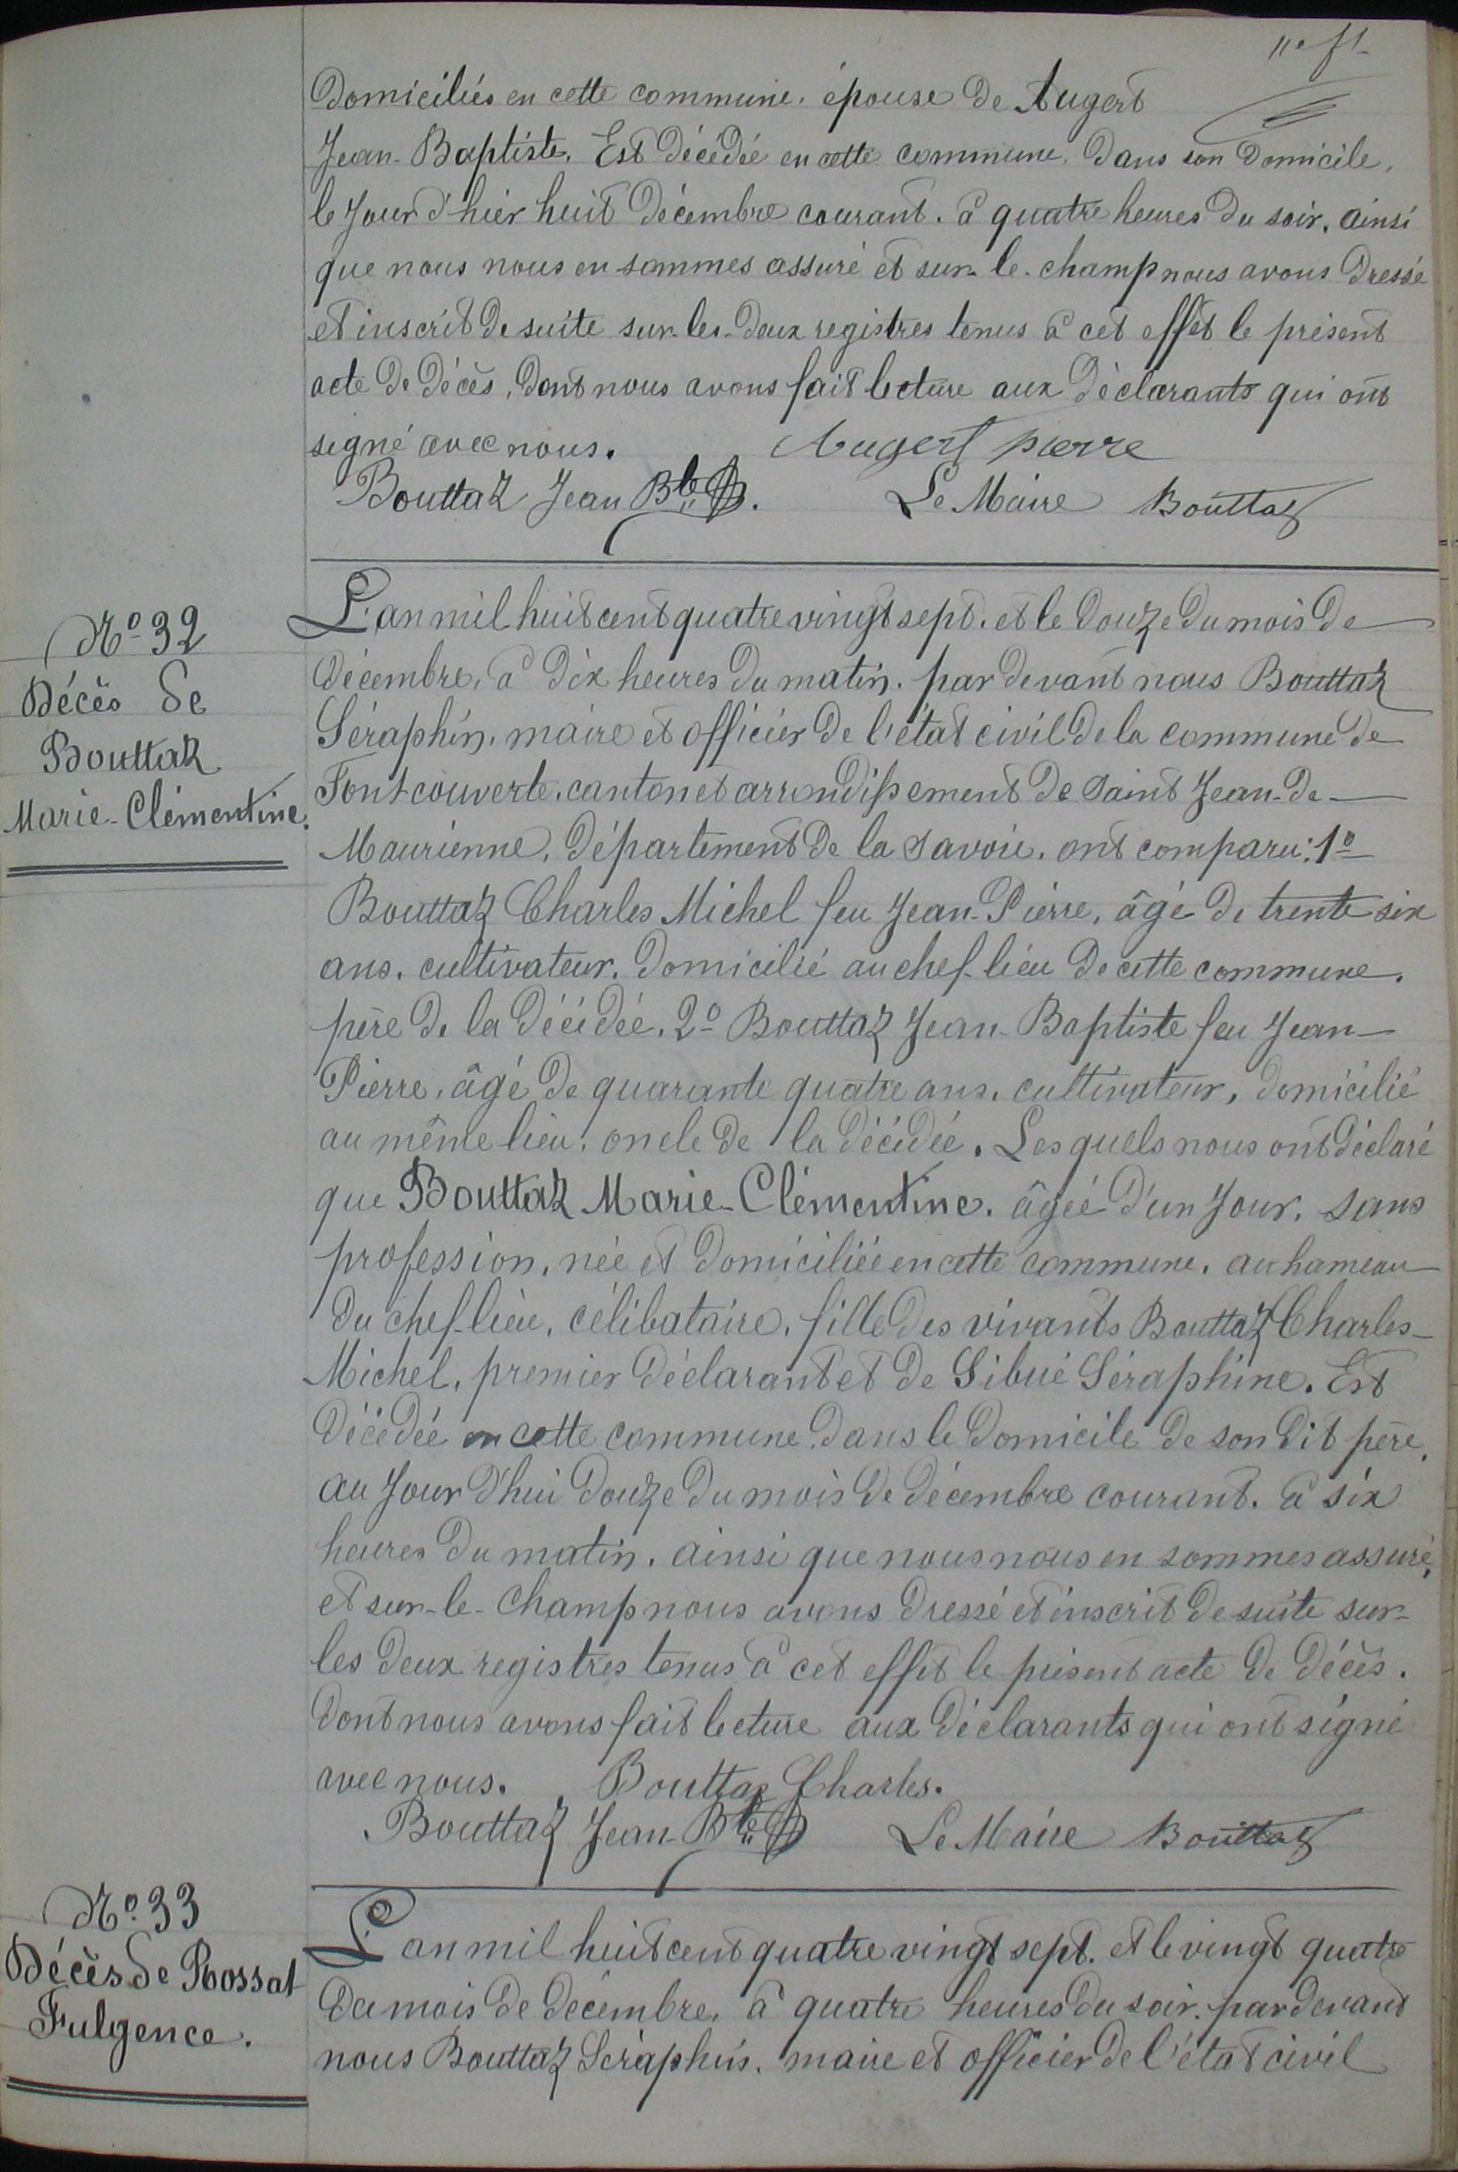 11e ft
domiciliés en cette commune, épouse de Augert
Jean-Baptiste. Est décédée en cette commune, dans son domicile,
le jour d'hier huit décembre courant, à quatre heures du soir, ainsi
que nous nous en sommes assuré et sur-le-champ nous avons dressé
et inscrit de suite sur-les-deux registres tenus à cet effet le présent
acte de décès, dont nous avons fait lecture aux déclarants qui ont
signé avec nous. Augert pierre
Bouttaz Jean Bte. Le Maire Bouttaz
No 32
Décès de
Bouttaz
Marie-Clémentine.
L'an mil huit cent quatre vingt sept, et le douze du mois de
décembre, à dix heures du matin, par devant nous Bouttaz
Séraphin, maire et officier de l'état civil de la commune de
Fontcouverte, canton et arrondissement de Saint Jean-de-
Maurienne, département de la Savoie, ont comparu: 1o
Bouttaz Charles Michel feu Jean-Pierre, âgé de trente six
ans, cultivateur, domicilié au chef-lieu de cette commune,
père de la décédée, 2o Bouttaz Jean-Baptiste feu Jean-
Pierre, âgé de quarante quatre ans, cultivateur, domicilié
au même lieu, oncle de la décédée. Lesquels nous ont déclaré
que Bouttaz Marie-Clémentine, âgée d'un jour, sans
profession, née et domiciliée en cette commune, au hameau
du chef-lieu, célibataire, fille des vivants Bouttaz Charles-
Michel, premier déclarant et de Sibué Séraphine. Est
décédée en cette commune dans le domicile de son dit père,
au jour d'hui douze du mois de décembre courant, à six
heures du matin, ainsi que nous nous en sommes assuré,
et sur-le-champ nous avons dressé et inscrit de suite sur-
les deux registres tenus à cet effet le présent acte de décès,
dont nous avons fait lecture aux déclarants qui ont signé
avec nous. Bouttaz Charles.
Bouttaz Jean-Bte Le Maire Bouttaz
No 33
Décès de Rossat
Fulgence.
L'an mil huit cent quatre vingt sept, et le vingt quatre
du mois de décembre, à quatre heures du soir, par devant
nous Bouttaz Séraphin, maire et officier de l'état civil